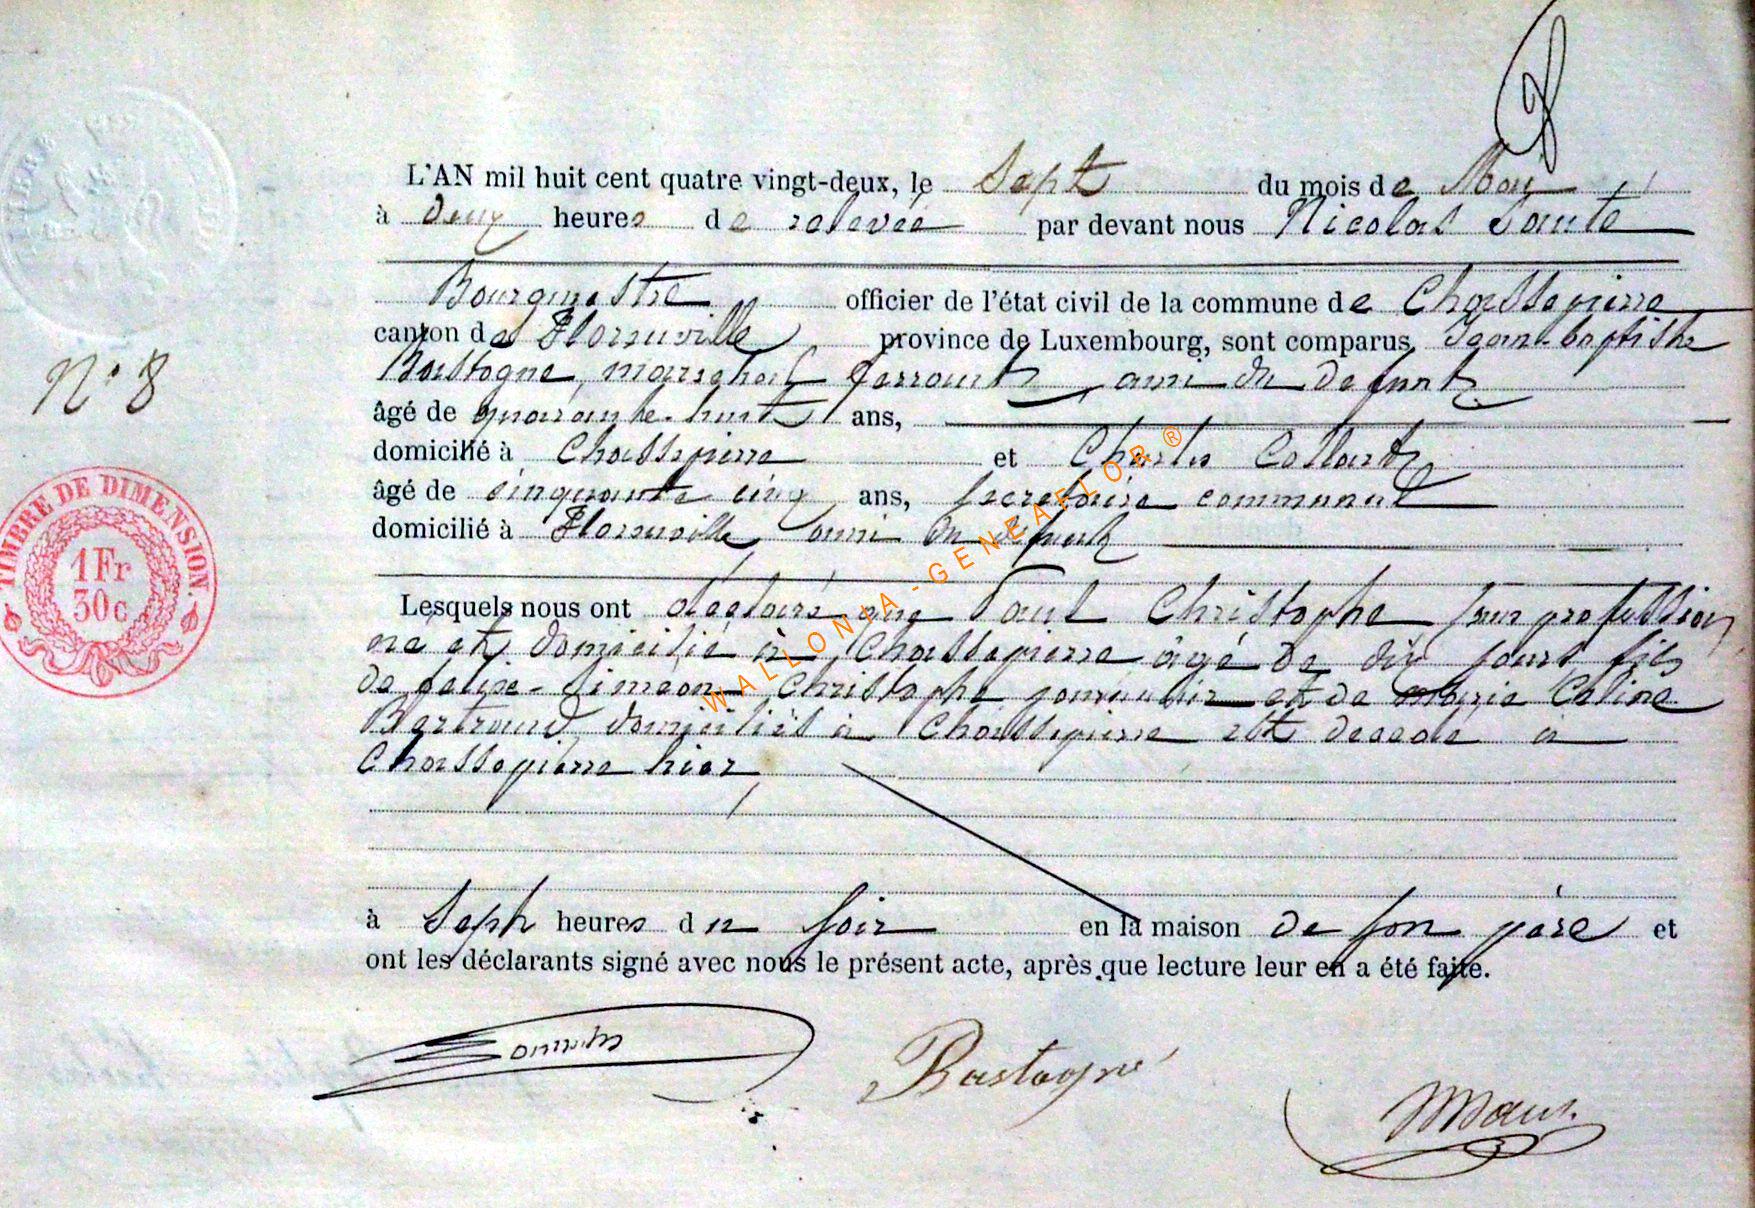 L'AN mil huit cent quatre vingt-deux, le Sept du mois de Mai
à deux heures de relevée par devant nous Nicolas
Bourgmestre officier de l'état civil de la commune de Chassepierre
canton de Florenville province de Luxembourg, sont comparus Jean-baptiste
Bastogne, marechal ferrant, ami du defunt
N° 8
âgé de quarante-huit ans,
domicilié à Chassepierre et Charles Collart
âgé de cinquante cinq ans, secretaire communal
domicilié à Florenville ami du defunt
TIMBRE DE DIMENSION.
1Fr
30c
WALLONIA-GENEAFLOR ®
Lesquels nous ont déclaré que Paul Christophe sans profession
né et domicilié à Chassepierre âgé de dix jours fils
de felixe-simeon Christophe journalier et de Marie Celine
Bertrand domiciliés à Chassepierre est decedé à
Chassepierre hier
à Sept heures du soir en la maison de son père et
ont les déclarants signé avec nous le présent acte, après que lecture leur en a été faite.
Bastogne